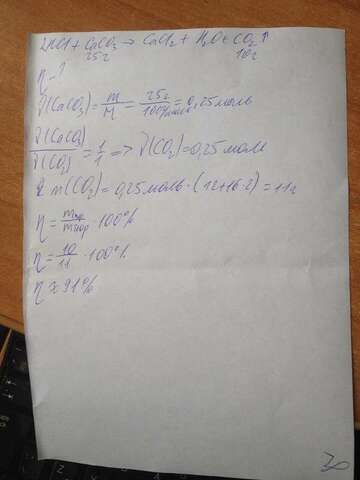 2HCl + CaCO₃ → CaCl₂ + H₂O + CO₂ ↑
25г 10г
η - ?
ν(CaCO₃) = m/M = 25г/100г/моль = 0,25моль
ν(CaCO₃)/ν(CO₂) = 1/1 => ν(CO₂) = 0,25 моль
m(CO₂) = 0,25моль · (12+16·2) = 11г
η = mпр/mтеор · 100%
η = 10/11 · 100%
η ≈ 91%
30